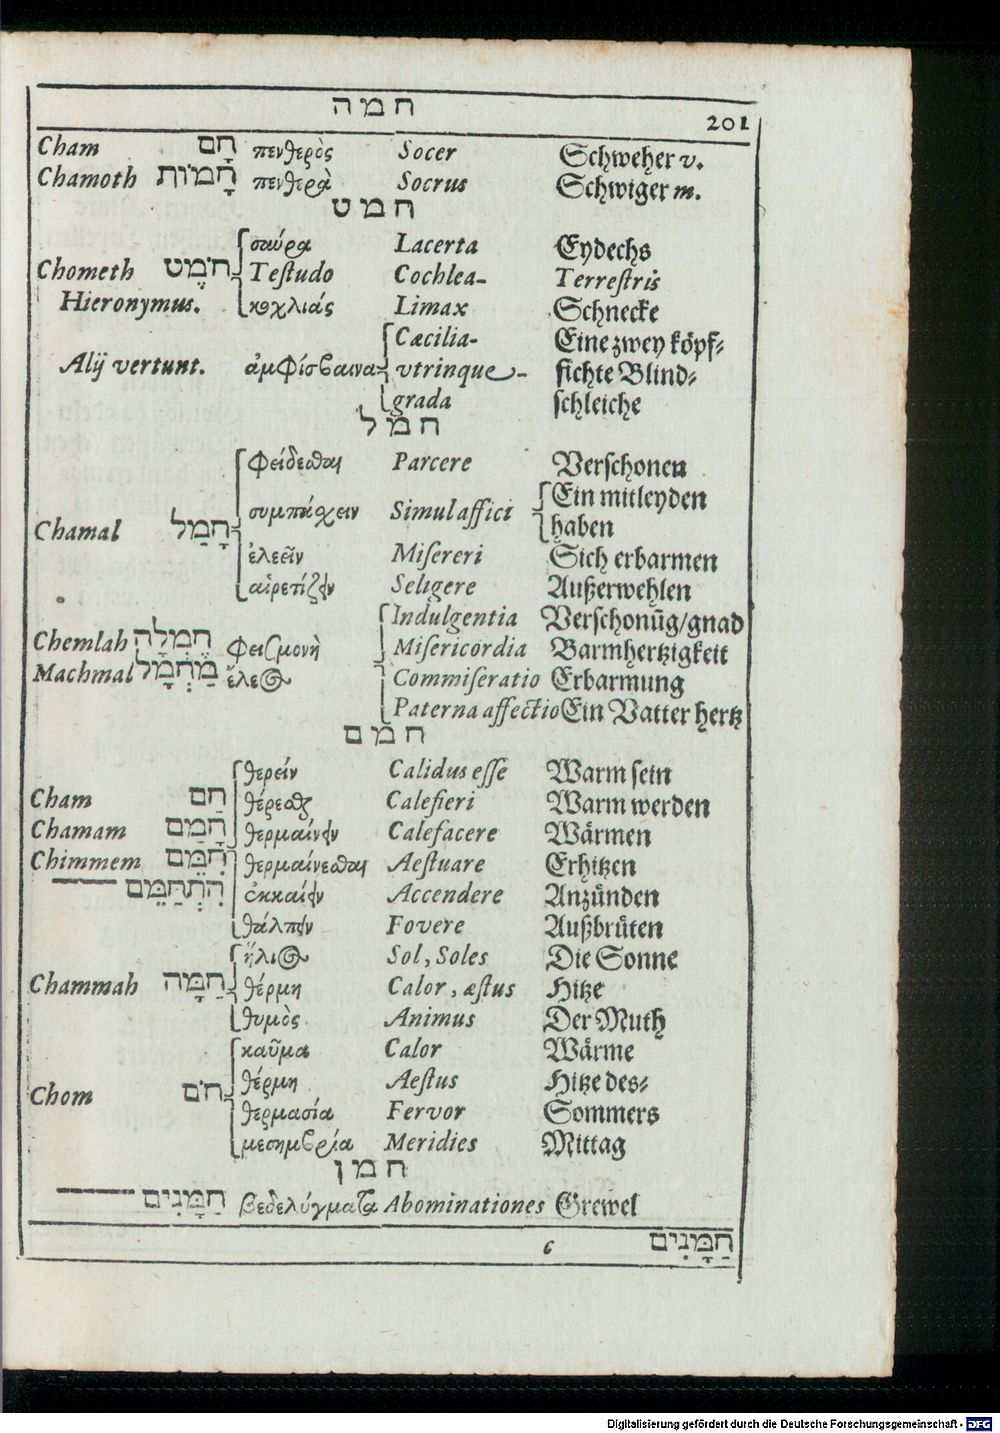 חמה
201
Cham חָם πενθερὸς Socer Schweher v.
Chamoth חָמוֹת πενθερὰ Socrus Schwiger m.
חמט
σαύρα Lacerta Eydechs
Chometh חֹמֶט Testudo Cochlea- Terrestris
Hieronymus. κοχλιάς Limax Schnecke
Cæcilia- Eine zwey köpf-
Alij vertunt. ἀμφίσβαινα vtrinque- fichte Blind-
grada schleiche
חמל
φείδεσθαι Parcere Verschonen
Ein mitleyden
συμπάσχειν Simul affici
haben
Chamal חָמַל
ἐλεεῖν Misereri Sich erbarmen
αἱρετίζειν Seligere Außerwehlen
Indulgentia Verschonūg/gnad
Chemlah חֶמְלָה φεισμονὴ Misericordia Barmhertzigkeit
Machmal מַחְמָל ἔλεος Commiseratio Erbarmung
Paterna affectio Ein Vatter hertz
חמם
θερεῖν Calidus esse Warm sein
Cham חַם θέρεσθαι Calefieri Warm werden
Chamam חָמַם θερμαίνειν Calefacere Wärmen
Chimmem חִמֵּם θερμαίνεσθαι Aestuare Erhitzen
הִתְחַמֵּם ἐκκαίειν Accendere Anzünden
θάλπειν Fovere Außbrüten
ἥλιος Sol, Soles Die Sonne
Chammah חַמָּה θέρμη Calor, æstus Hitze
θυμὸς Animus Der Muth
καῦμα Calor Wärme
θέρμη Aestus Hitze des-
Chom חֹם
θερμασία Fervor Sommers
μεσημβρία Meridies Mittag
חמן
חַמָּנִים βεδελύγματα Abominationes Grewel
c חַמָּנִים
Digitalisierung gefördert durch die Deutsche Forschungsgemeinschaft - DFG